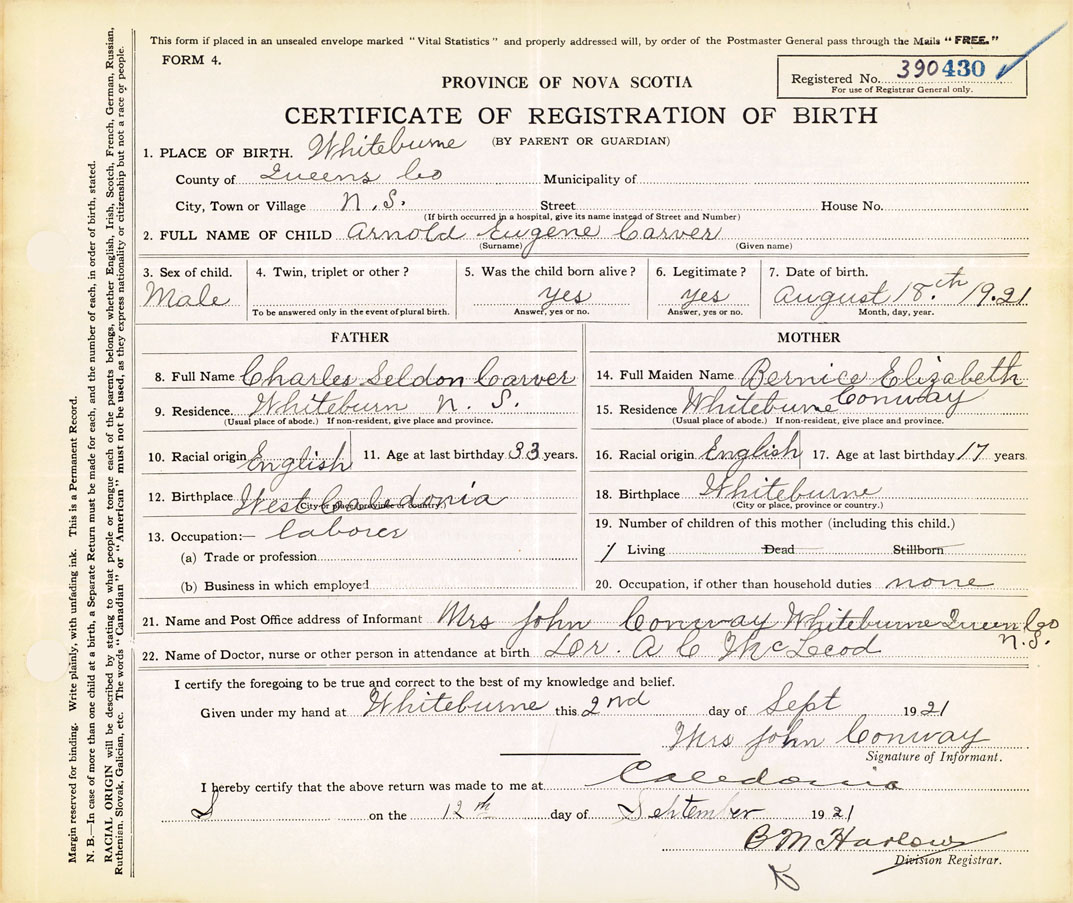 This form if placed in an unsealed envelope marked "Vital Statistics" and properly addressed will, by order of the Postmaster General pass through the Mails "FREE."
FORM 4.
PROVINCE OF NOVA SCOTIA
Registered No. 390430
For use of Registrar General only.
CERTIFICATE OF REGISTRATION OF BIRTH
(BY PARENT OR GUARDIAN)
1. PLACE OF BIRTH. Whiteburne
County of Queens Co Municipality of
City, Town or Village N.S. Street House No.
(If birth occurred in a hospital, give its name instead of Street and Number)
2. FULL NAME OF CHILD Arnold Eugene Carver
(Surname) (Given name)
3. Sex of child. 4. Twin, triplet or other? 5. Was the child born alive? 6. Legitimate? 7. Date of birth.
Male yes yes August 18.th 19.21
To be answered only in the event of plural birth. Answer, yes or no. Answer, yes or no. Month, day, year.
FATHER
8. Full Name Charles Seldon Carver
9. Residence. Whiteburn N. S.
(Usual place of abode.) If non-resident, give place and province.
10. Racial origin English 11. Age at last birthday 33 years.
12. Birthplace West Caledonia
(City or place, province or country.)
13. Occupation:— laborer
(a) Trade or profession
(b) Business in which employed
MOTHER
14. Full Maiden Name Bernice Elizabeth
Conway
15. Residence Whiteburne
(Usual place of abode.) If non-resident, give place and province.
16. Racial origin English 17. Age at last birthday 17 years.
18. Birthplace Whiteburne
(City or place, province or country.)
19. Number of children of this mother (including this child.)
1 Living Dead Stillborn
20. Occupation, if other than household duties none
21. Name and Post Office address of Informant Mrs John Conway Whiteburne Queen Co
N.S.
22. Name of Doctor, nurse or other person in attendance at birth Dr. A C McLeod
I certify the foregoing to be true and correct to the best of my knowledge and belief.
Given under my hand at Whiteburne this 2nd day of Sept 1921
Mrs John Conway
Signature of Informant.
I hereby certify that the above return was made to me at Caledonia
on the 12th day of September 1921
B M Harlow
Division Registrar.
Margin reserved for binding. Write plainly, with unfading ink. This is a Permanent Record.
N. B.—In case of more than one child at a birth, a Separate Return must be made for each, and the number of each, in order of birth, stated.
RACIAL ORIGIN will be described by stating to what people or tongue each of the parents belongs, whether English, Irish, Scotch, French, German, Russian,
Ruthenian, Slovak, Galician, etc. The words "Canadian" or "American" must not be used, as they express nationality or citizenship but not a race or people.